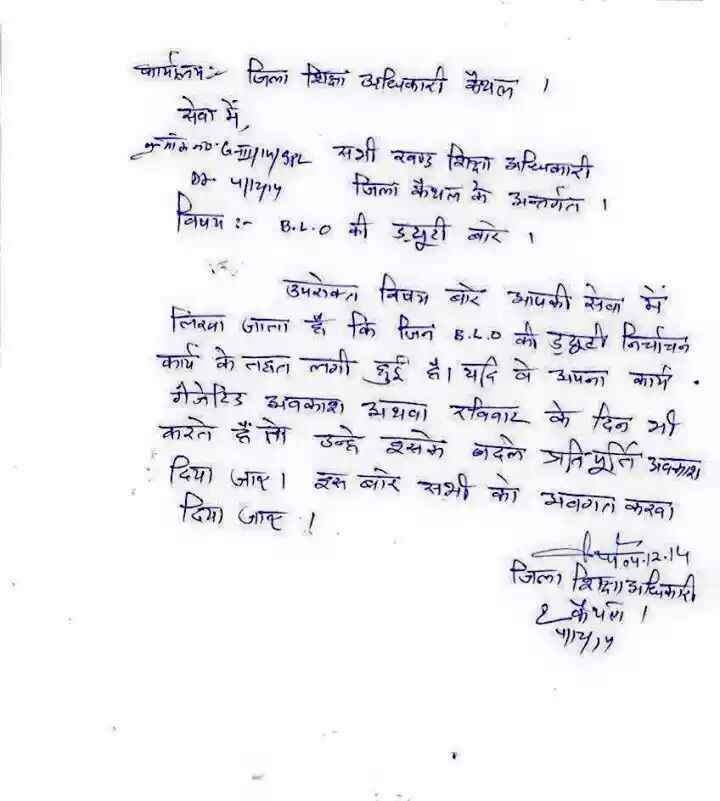 कार्यालय:- जिला शिक्षा अधिकारी कैथल ।
सेवा में,
क्रमांक no. G-III/14/SPL सभी खण्ड शिक्षा अधिकारी
Dt. 4/12/14 जिला कैथल के अन्तर्गत ।
विषय :- B.L.O की ड्यूटी बारे ।
उपरोक्त विषय बारे आपकी सेवा में
लिखा जाता है कि जिन B.L.O की ड्यूटी निर्वाचन
कार्य के तहत लगी हुई है। यदि वे अपना कार्य
गैजेटिड अवकाश अथवा रविवार के दिन भी
करते हैं तो उन्हे इसके बदले प्रतिपूर्ति अवकाश
दिया जाए। इस बारे सभी को अवगत करवा
दिया जाए ।
04.12.14
जिला शिक्षा अधिकारी
कैथल ।
4/12/14